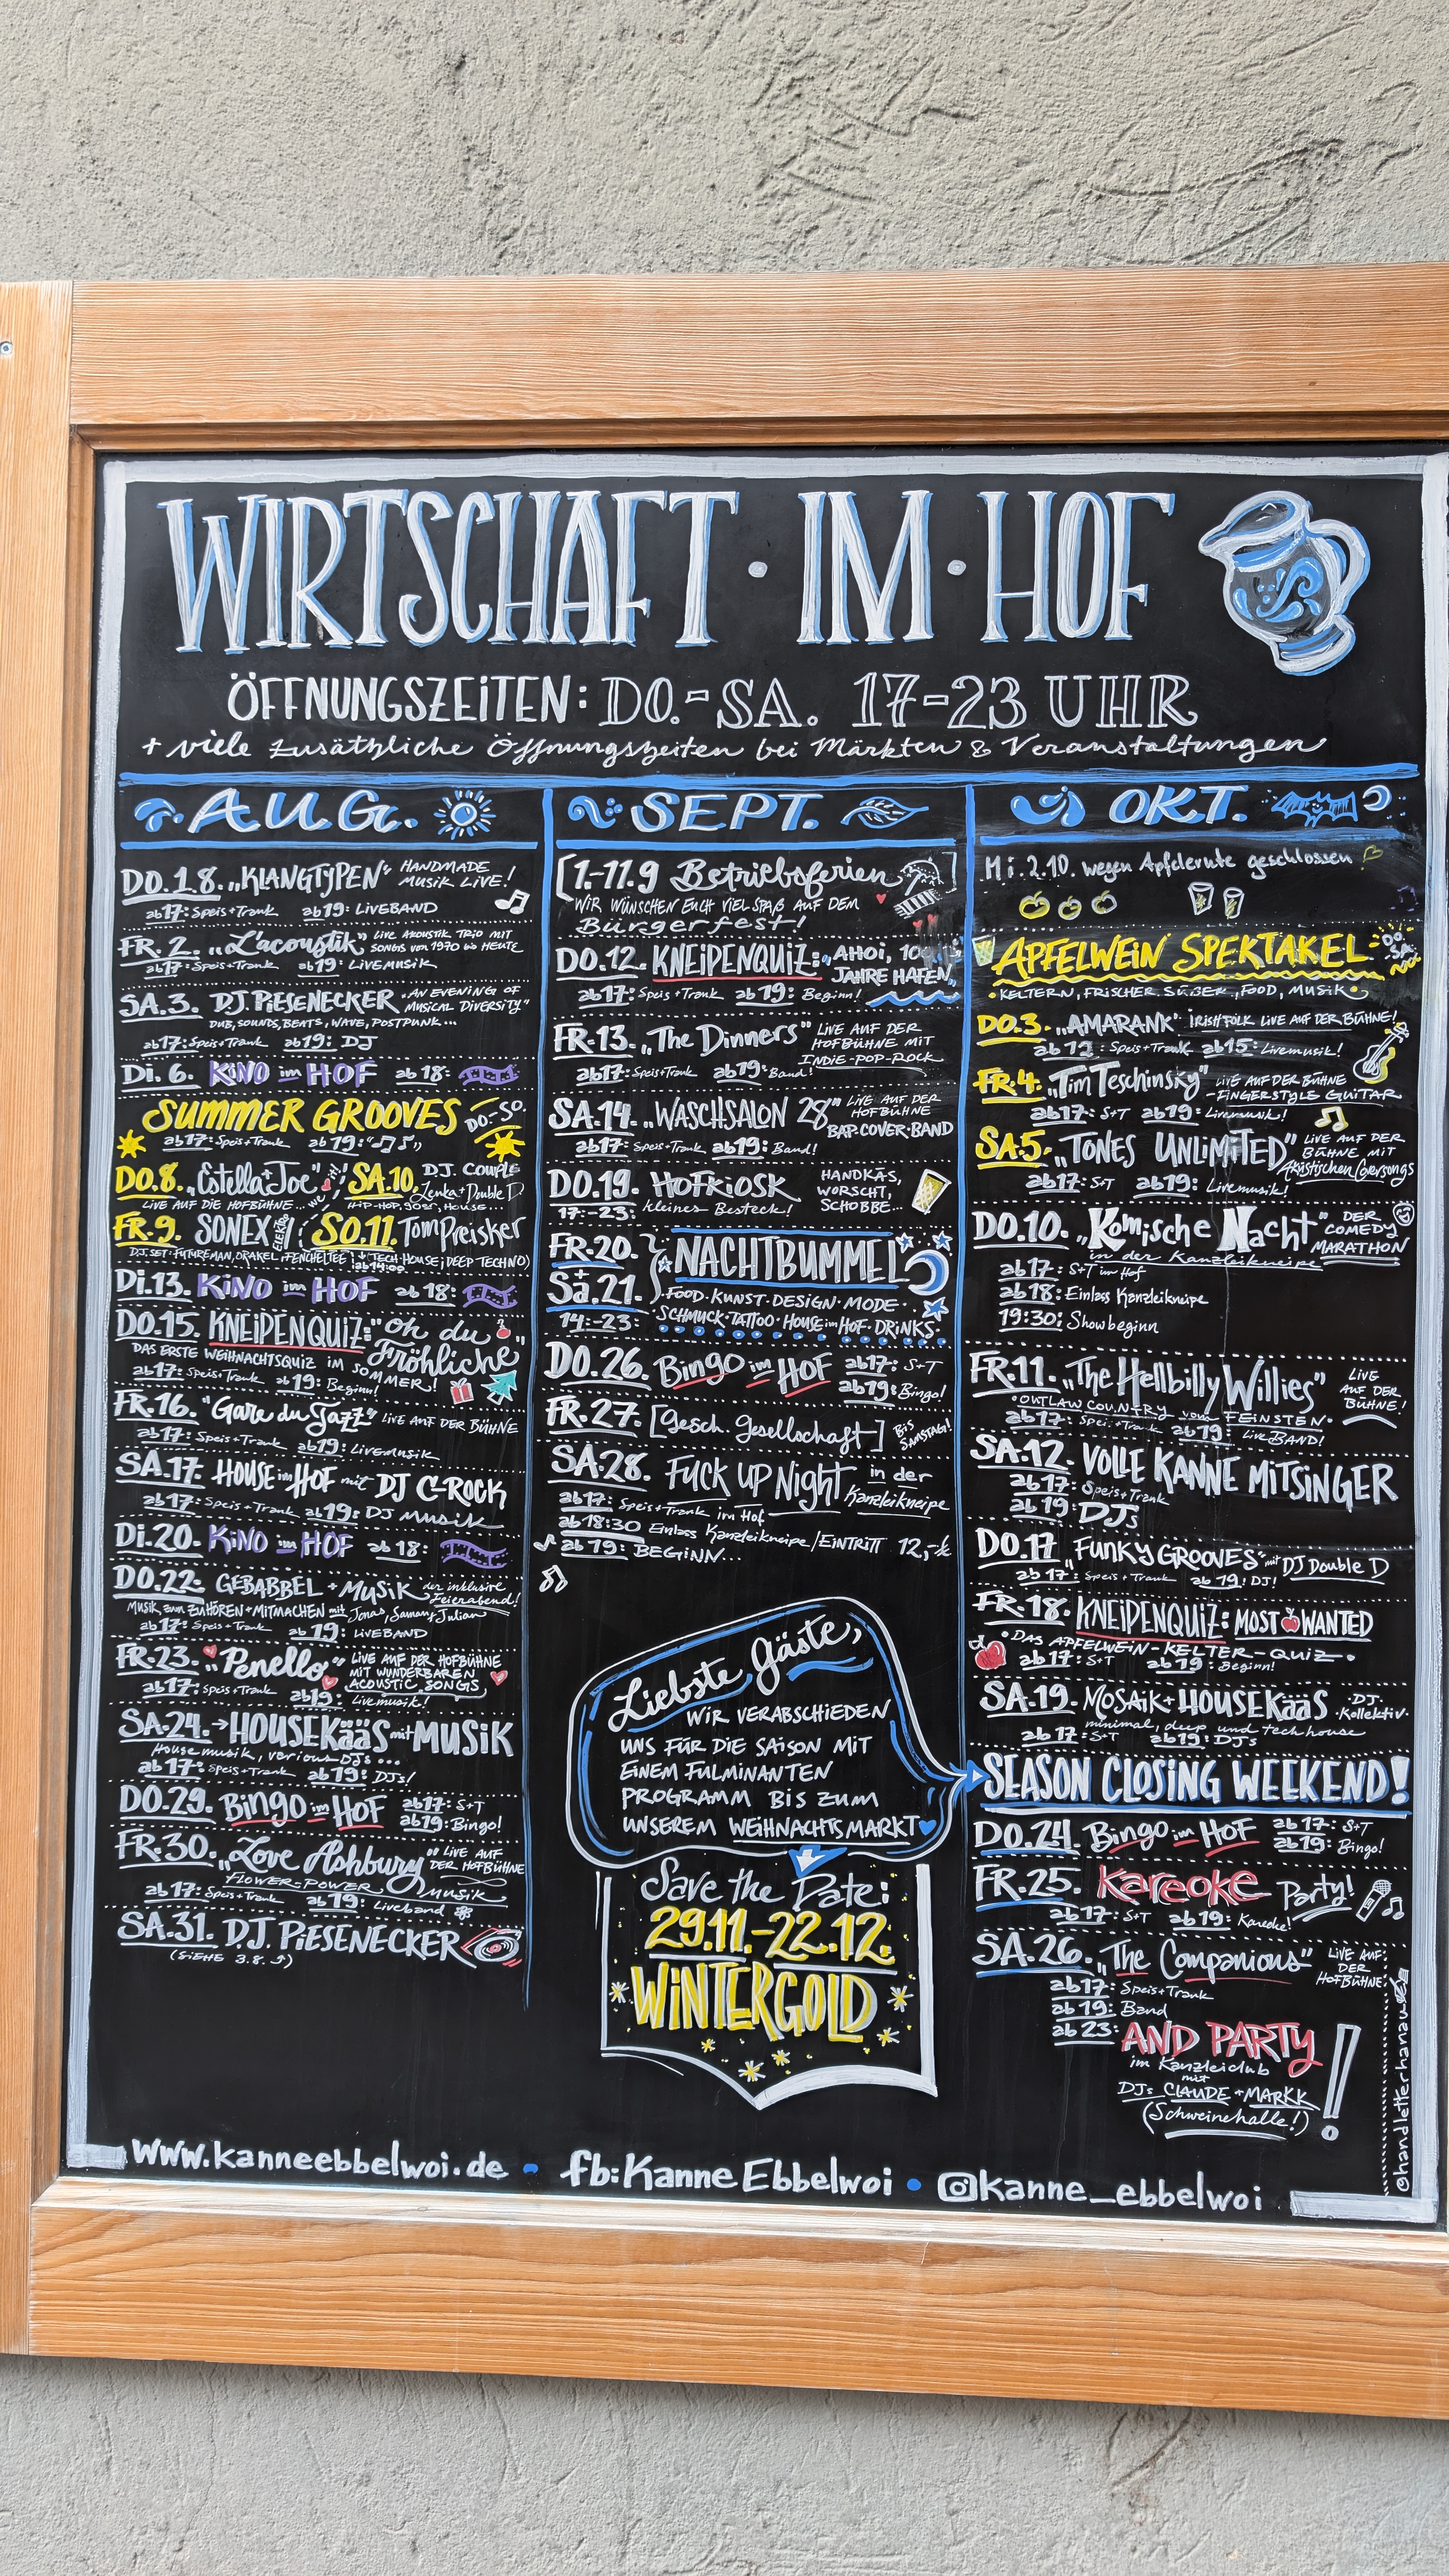 WIRTSCHAFT · IM · HOF
ÖFFNUNGSZEITEN: DO.-SA. 17-23 UHR
+ viele zusätzliche Öffnungszeiten bei Märkten & Veranstaltungen
AUG.
DO.1.8. „KLANGTYPEN" HANDMADE MUSIK LIVE!
ab 17: Speis+Trank ab 19: LIVEBAND
FR. 2. „L'acoustik" LIVE AKUSTIK TRIO MIT SONGS von 1970 bis HEUTE
ab 17: Speis+Trank ab 19: LIVEMUSIK
SA. 3. DJ. PIESENECKER „AN EVENING OF MUSICAL DIVERSITY"
DUB, SOUNDS, BEATS, WAVE, POSTPUNK...
ab 17: Speis+Trank ab 19: DJ
Di. 6. KINO im HOF ab 18:
SUMMER GROOVES DO.-SO.
ab 17: Speis+Trank ab 19: „♫♪"
DO.8. „Estella+Joe"
LIVE AUF DIE HOFBÜHNE...
SA.10. DJ. Couple Zenka+Double D
HIP-HOP, 90er, HOUSE...
FR.9. SONEX ELEKTRO
DJ.SET: FUTUREMAN, ORAKEL, FENCHELTEE
SO.11. Tom Preisker
(TECH HOUSE; DEEP TECHNO)
ab 14:00
Di.13. KINO im HOF ab 18:
DO.15. KNEIPENQUIZ: „oh du Fröhliche"
DAS ERSTE WEIHNACHTSQUIZ IM SOMMER!
ab 17: Speis+Trank ab 19: Beginn!
FR.16. "Gare du Jazz" LIVE AUF DER BÜHNE
ab 17: Speis+Trank ab 19: LIVEMUSIK
SA.17. HOUSE im HOF mit DJ C-ROCK
ab 17: Speis+Trank ab 19: DJ MUSIK
Di.20. KINO im HOF ab 18:
DO.22. GEBABBEL + MUSIK der inklusive Feierabend!
MUSIK zum ZUHÖREN+MITMACHEN mit Jonas, Samany Julian
ab 17: Speis+Trank ab 19: LIVEBAND
FR.23. „Penello" LIVE AUF DER HOFBÜHNE MIT WUNDERBAREN ACOUSTIC SONGS
ab 17: Speis+Trank ab 19: Livemusik!
SA.24. → HOUSEKääS mit MUSIK
House musik, various DJs ...
ab 17: Speis+Trank ab 19: DJs!
DO.29. Bingo im HOF ab 17: S+T
ab 19: Bingo!
FR.30. „Love Ashbury" LIVE AUF DER HOFBÜHNE
FLOWER-POWER MUSIK
ab 17: Speis+Trank ab 19: Liveband
SA.31. DJ. PIESENECKER
(SIEHE 3.8. ⤴)
SEPT.
[1.-11.9 Betriebsferien]
WIR WÜNSCHEN EUCH VIEL SPAß AUF DEM
Bürgerfest!
DO.12. KNEIPENQUIZ: „AHOI, 100 JAHRE HAFEN"
ab 17: Speis+Trank ab 19: Beginn!
FR.13. „The Dinners" LIVE AUF DER HOFBÜHNE MIT INDIE-POP-ROCK
ab 17: Speis+Trank ab 19: Band!
SA.14. „WASCHSALON 28" LIVE AUF DER HOFBÜHNE
BAP-COVER-BAND
ab 17: Speis+Trank ab 19: Band!
DO.19. HOFKIOSK HANDKÄS, WORSCHT, SCHOBBE...
17:-23: kleines Besteck!
FR.20. + Sa.21. NACHTBUMMEL
14:-23: FOOD·KUNST·DESIGN·MODE·
SCHMUCK·TATTOO·HOUSE im HOF·DRINKS·
DO.26. Bingo im HOF ab 17: S+T
ab 19: Bingo!
FR.27. [Gesch. Gesellschaft] BIS SAMSTAG!
SA.28. FUCK UP Night in der Kanzleikneipe
ab 17: Speis+Trank im Hof
ab 18:30 Einlass Kanzleikneipe/EINTRITT 12,-€
ab 19: BEGINN...
Liebste Gäste,
WIR VERABSCHIEDEN
UNS FÜR DIE SAISON MIT
EINEM FULMINANTEN
PROGRAMM BIS ZUM
UNSEREM WEIHNACHTSMARKT
Save the Date:
29.11.-22.12.
WINTERGOLD
OKT.
Mi. 2.10. wegen Apfelernte geschlossen
APFELWEIN SPEKTAKEL DO.-SA.
· KELTERN, FRISCHER SÜßER, FOOD, MUSIK ·
DO.3. „AMARANK" IRISH FOLK LIVE AUF DER BÜHNE!
ab 12: Speis+Trank ab 15: Livemusik!
FR.4. „Tim Teschinsky" LIVE AUF DER BÜHNE
-FINGERSTYLE GUITAR
ab 17: S+T ab 19: Livemusik!
SA.5. „TONES UNLIMITED" LIVE AUF DER BÜHNE MIT Akustischen Coversongs
ab 17: S+T ab 19: Livemusik!
DO.10. „Komische Nacht" DER COMEDY MARATHON
in der Kanzleikneipe
ab 17: S+T im Hof
ab 18: Einlass Kanzleikneipe
19:30: Showbeginn
FR.11. „The Hellbilly Willies" LIVE AUF DER BÜHNE!
·OUTLAW COUNTRY vom FEINSTEN·
ab 17: Speis+Trank ab 19: Live BAND!
SA.12. VOLLE KANNE MITSINGER
ab 17: Speis+Trank
ab 19: DJs
DO.17. „FUNKY GROOVES" mit DJ Double D
ab 17: Speis+Trank ab 19: DJ!
FR.18. KNEIPENQUIZ: MOST WANTED
·DAS APFELWEIN-KELTER-QUIZ·
ab 17: S+T ab 19: Beginn!
SA.19. MOSAIK+HOUSEKääS ·DJ· Kollektiv·
minimal, deep und tech house
ab 17: S+T ab 19: DJs
SEASON CLOSING WEEKEND!
DO.24. Bingo im HOF ab 17: S+T
ab 19: Bingo!
FR.25. Kareoke Party!
ab 17: S+T ab 19: Kareoke!
SA.26. „The Companions" LIVE AUF DER HOFBÜHNE
ab 17: Speis+Trank
ab 19: Band
ab 23: AND PARTY!
im Kanzleiclub
mit
DJs CLAUDE + MARKK
(Schweinehalle!)
@handletterhanau
www.kanneebbelwoi.de • fb: Kanne Ebbelwoi • kanne_ebbelwoi